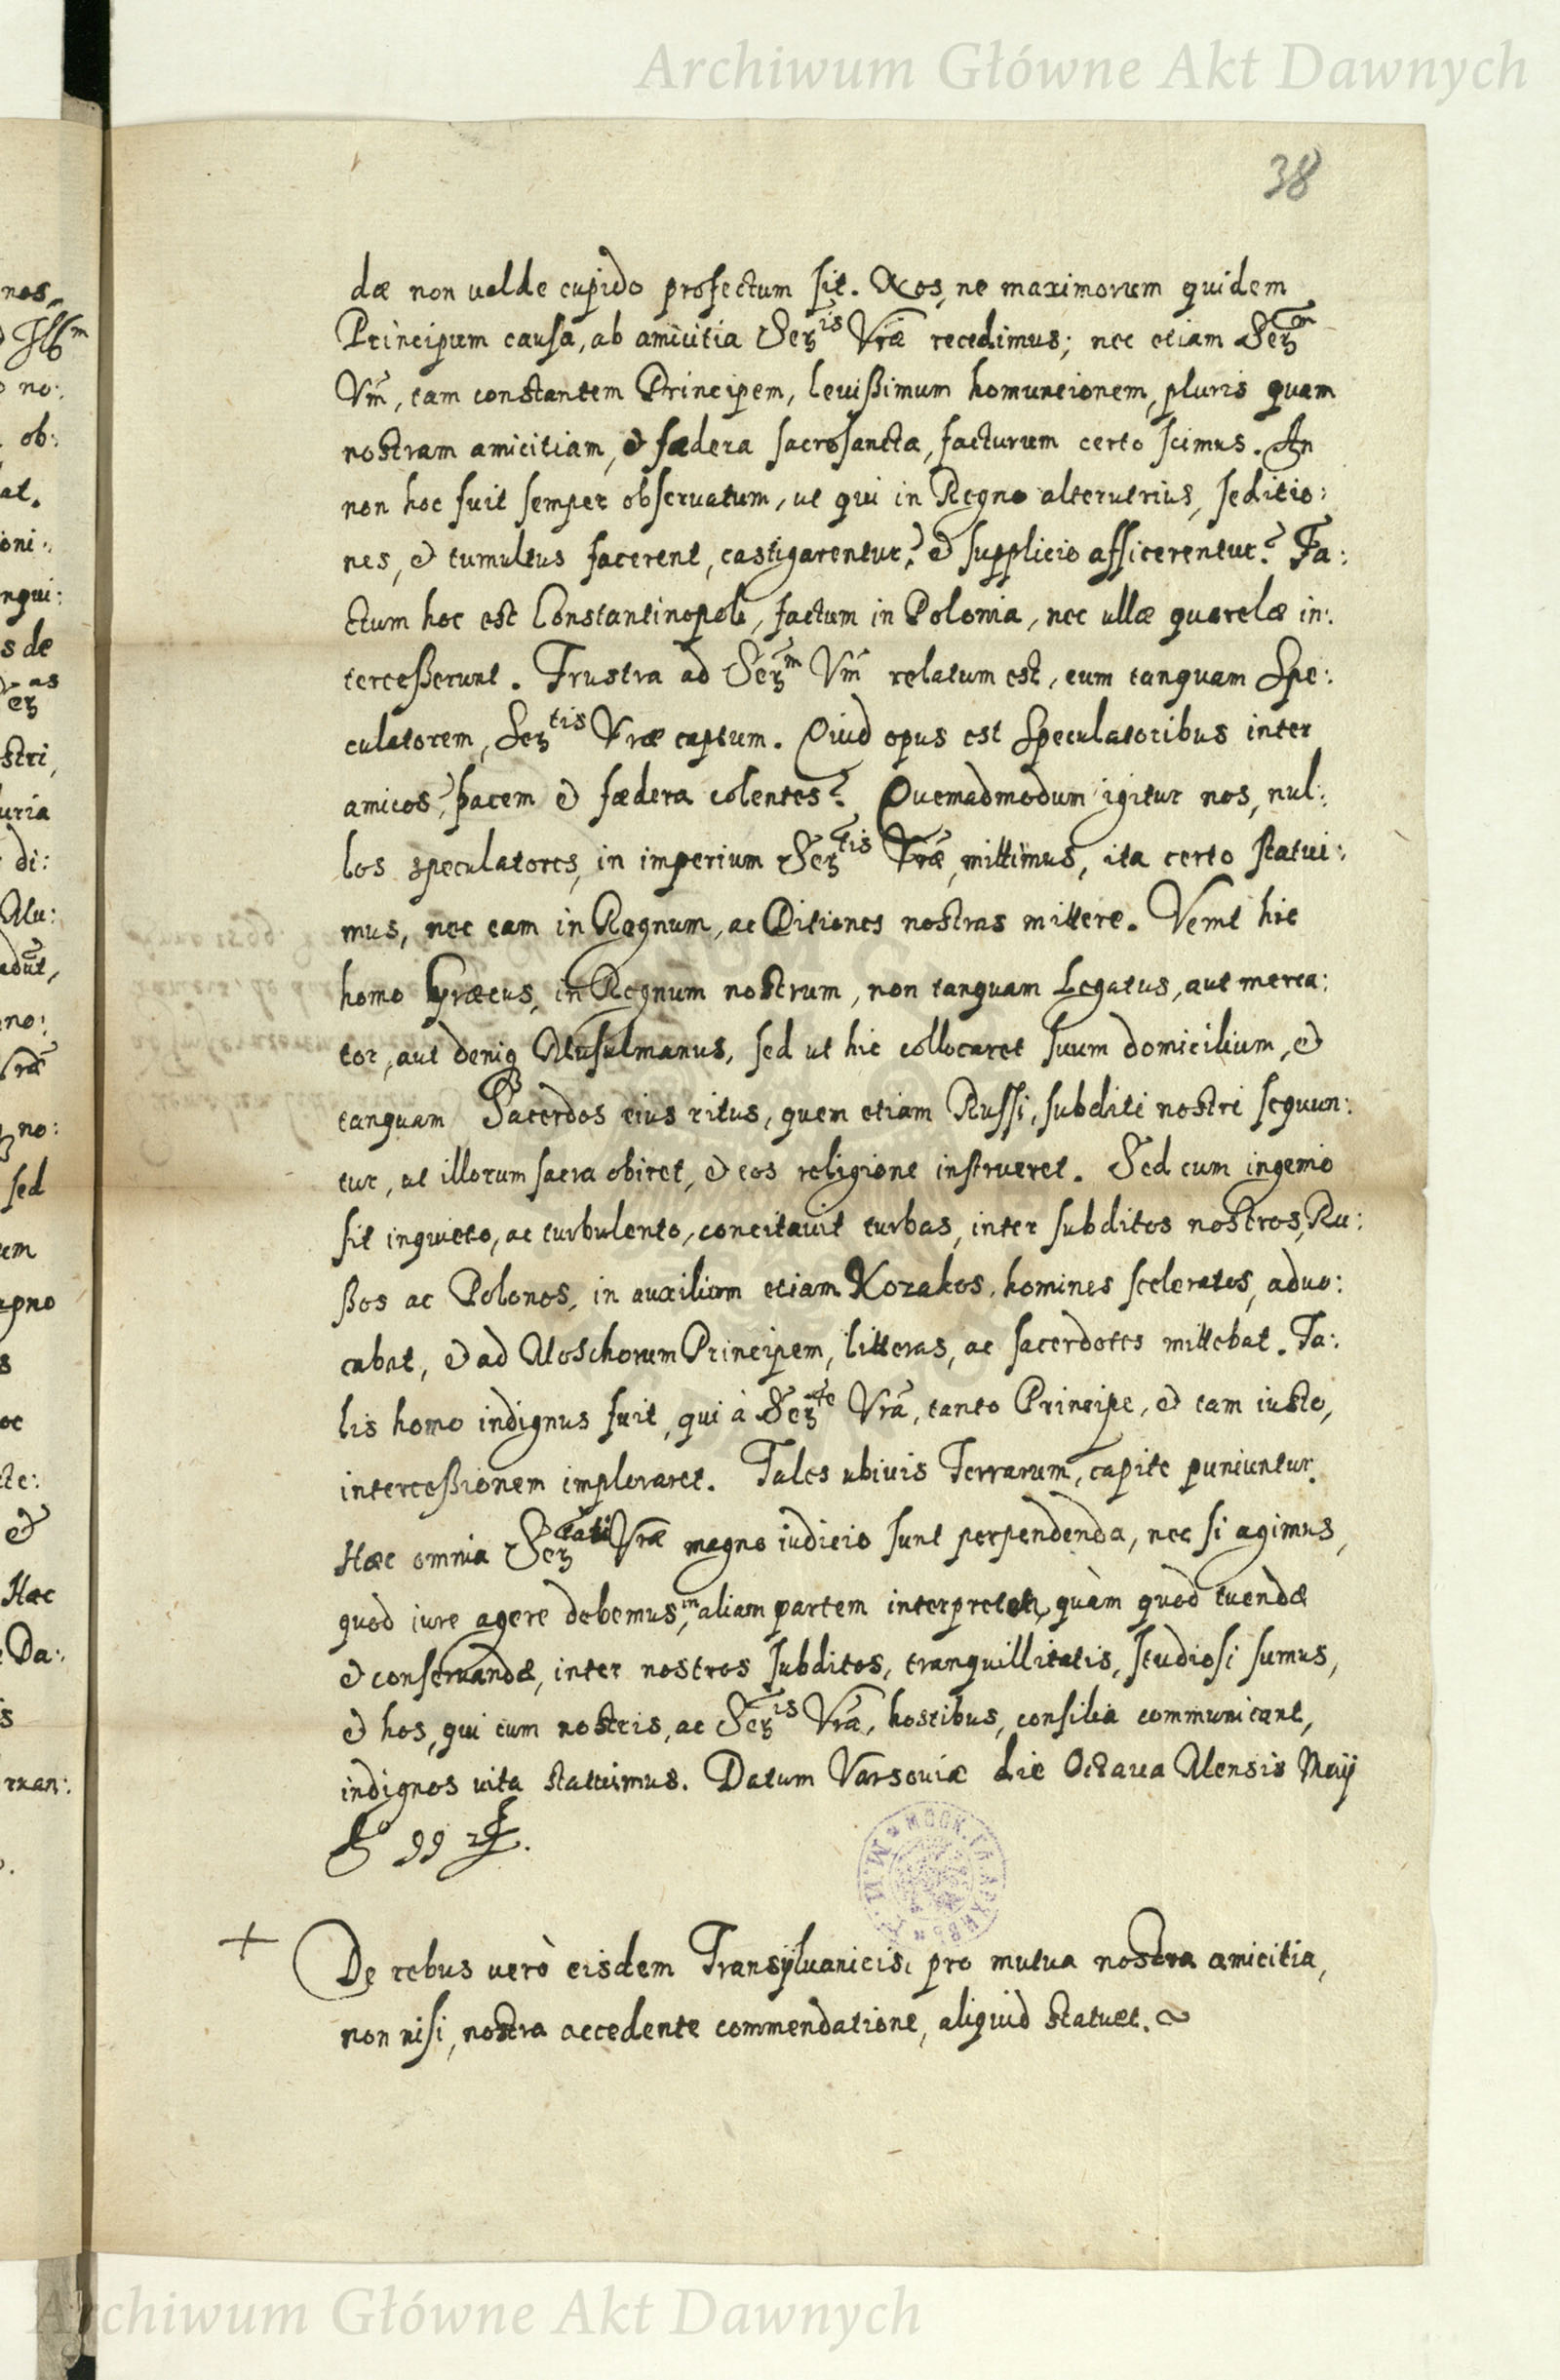 Archiwum Główne Akt Dawnych
38
dæ non valde cupido profectum sit. Nos, ne maximorum quidem
Principum causa, ab amicitia Serꝫis Vræ recedimus; nec etiam Serꝫm
Vm̃, tam constantem Principem, levißimum homuncionem, pluris quam
nostram amicitiam, & fædera sacrosancta, facturum certo scimus. An
non hoc fuit semper observatum, ut qui in Regno alterutrius, seditio:
nes, & tumultus facerent, castigarentur? & supplicio afficerentur? Fa:
ctum hoc est Constantinopoli, factum in Polonia, nec ullæ querelæ in:
terceßerunt. Frustra ad Serꝫm Vm̃ relatum est, eum tanquam Spe:
culatorem, Serꝫtis Vræ captum. Quid opus est Speculatoribus inter
amicos, pacem & fædera colentes? Quemadmodum igitur nos, nul:
los speculatores, in imperium Serꝫtis Vræ, mittimus, ita certo statui:
mus, nec eam in Regnum, ac Ditiones nostras mittere. Venit hic
homo Græcus, in Regnum nostrum, non tanquam Legatus, aut merca:
tor, aut deniq Musulmanus, sed ut hic collocaret suum domicilium, &
tanquam Sacerdos eius ritus, quem etiam Russi, subditi nostri sequun:
tur, ut illorum sacra obiret, & eos religione instrueret. Sed cum ingenio
sit inquieto, ac turbulento, concitavit turbas, inter subditos nostros, Ru:
ßos ac Polonos, in auxilium etiam Kozakos, homines sceleratos, advo:
cabat, & ad Moschorum Principem, litteras, ac sacerdotes mittebat. Ta:
lis homo indignus fuit, qui à Serꝫte Vrã, tanto Principe, & tam iusto,
interceßionem imploraret. Tales ubivis Terrarum, capite puniuntur.
Hæc omnia Serꝫtati Vræ magno iudicio sunt perpendenda, nec si agimus,
quod iure agere debemus, in aliam partem interpretetur, quàm quod tuendæ
& conservandæ, inter nostros subditos, tranquillitatis, studiosi sumus,
& hos, qui cum nostris, ac Serꝫis Vræ, hostibus, consilia communicant,
indignos vita statuimus. Datum Varsoviæ die Octava Mensis Maij
99
De rebus verò eisdem Transÿlvanicis, pro mutua nostra amicitia,
non nisi, nostra accedente commendatione, aliquid statuet.
Archiwum Główne Akt Dawnych